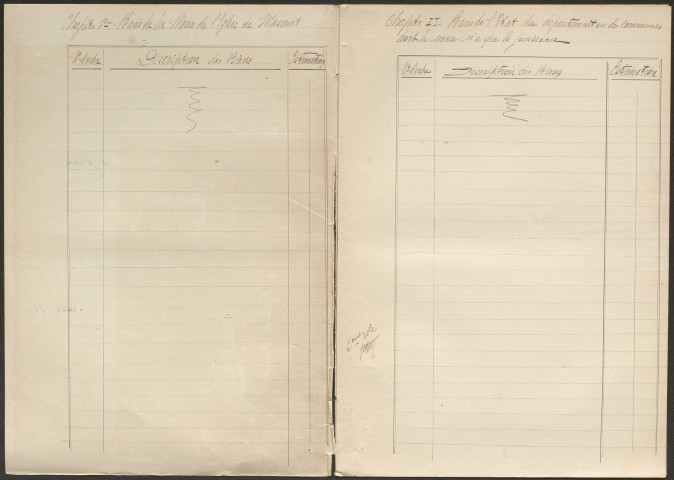 Chapitre 1er Biens de la Mense de l'Eglise de
N° d'ordre Description des Biens Estimation
Chapitre II Biens de l'Etat du département ou des communes
dont la mense n'a que la jouissance
N° d'ordre Description des Biens Estimation